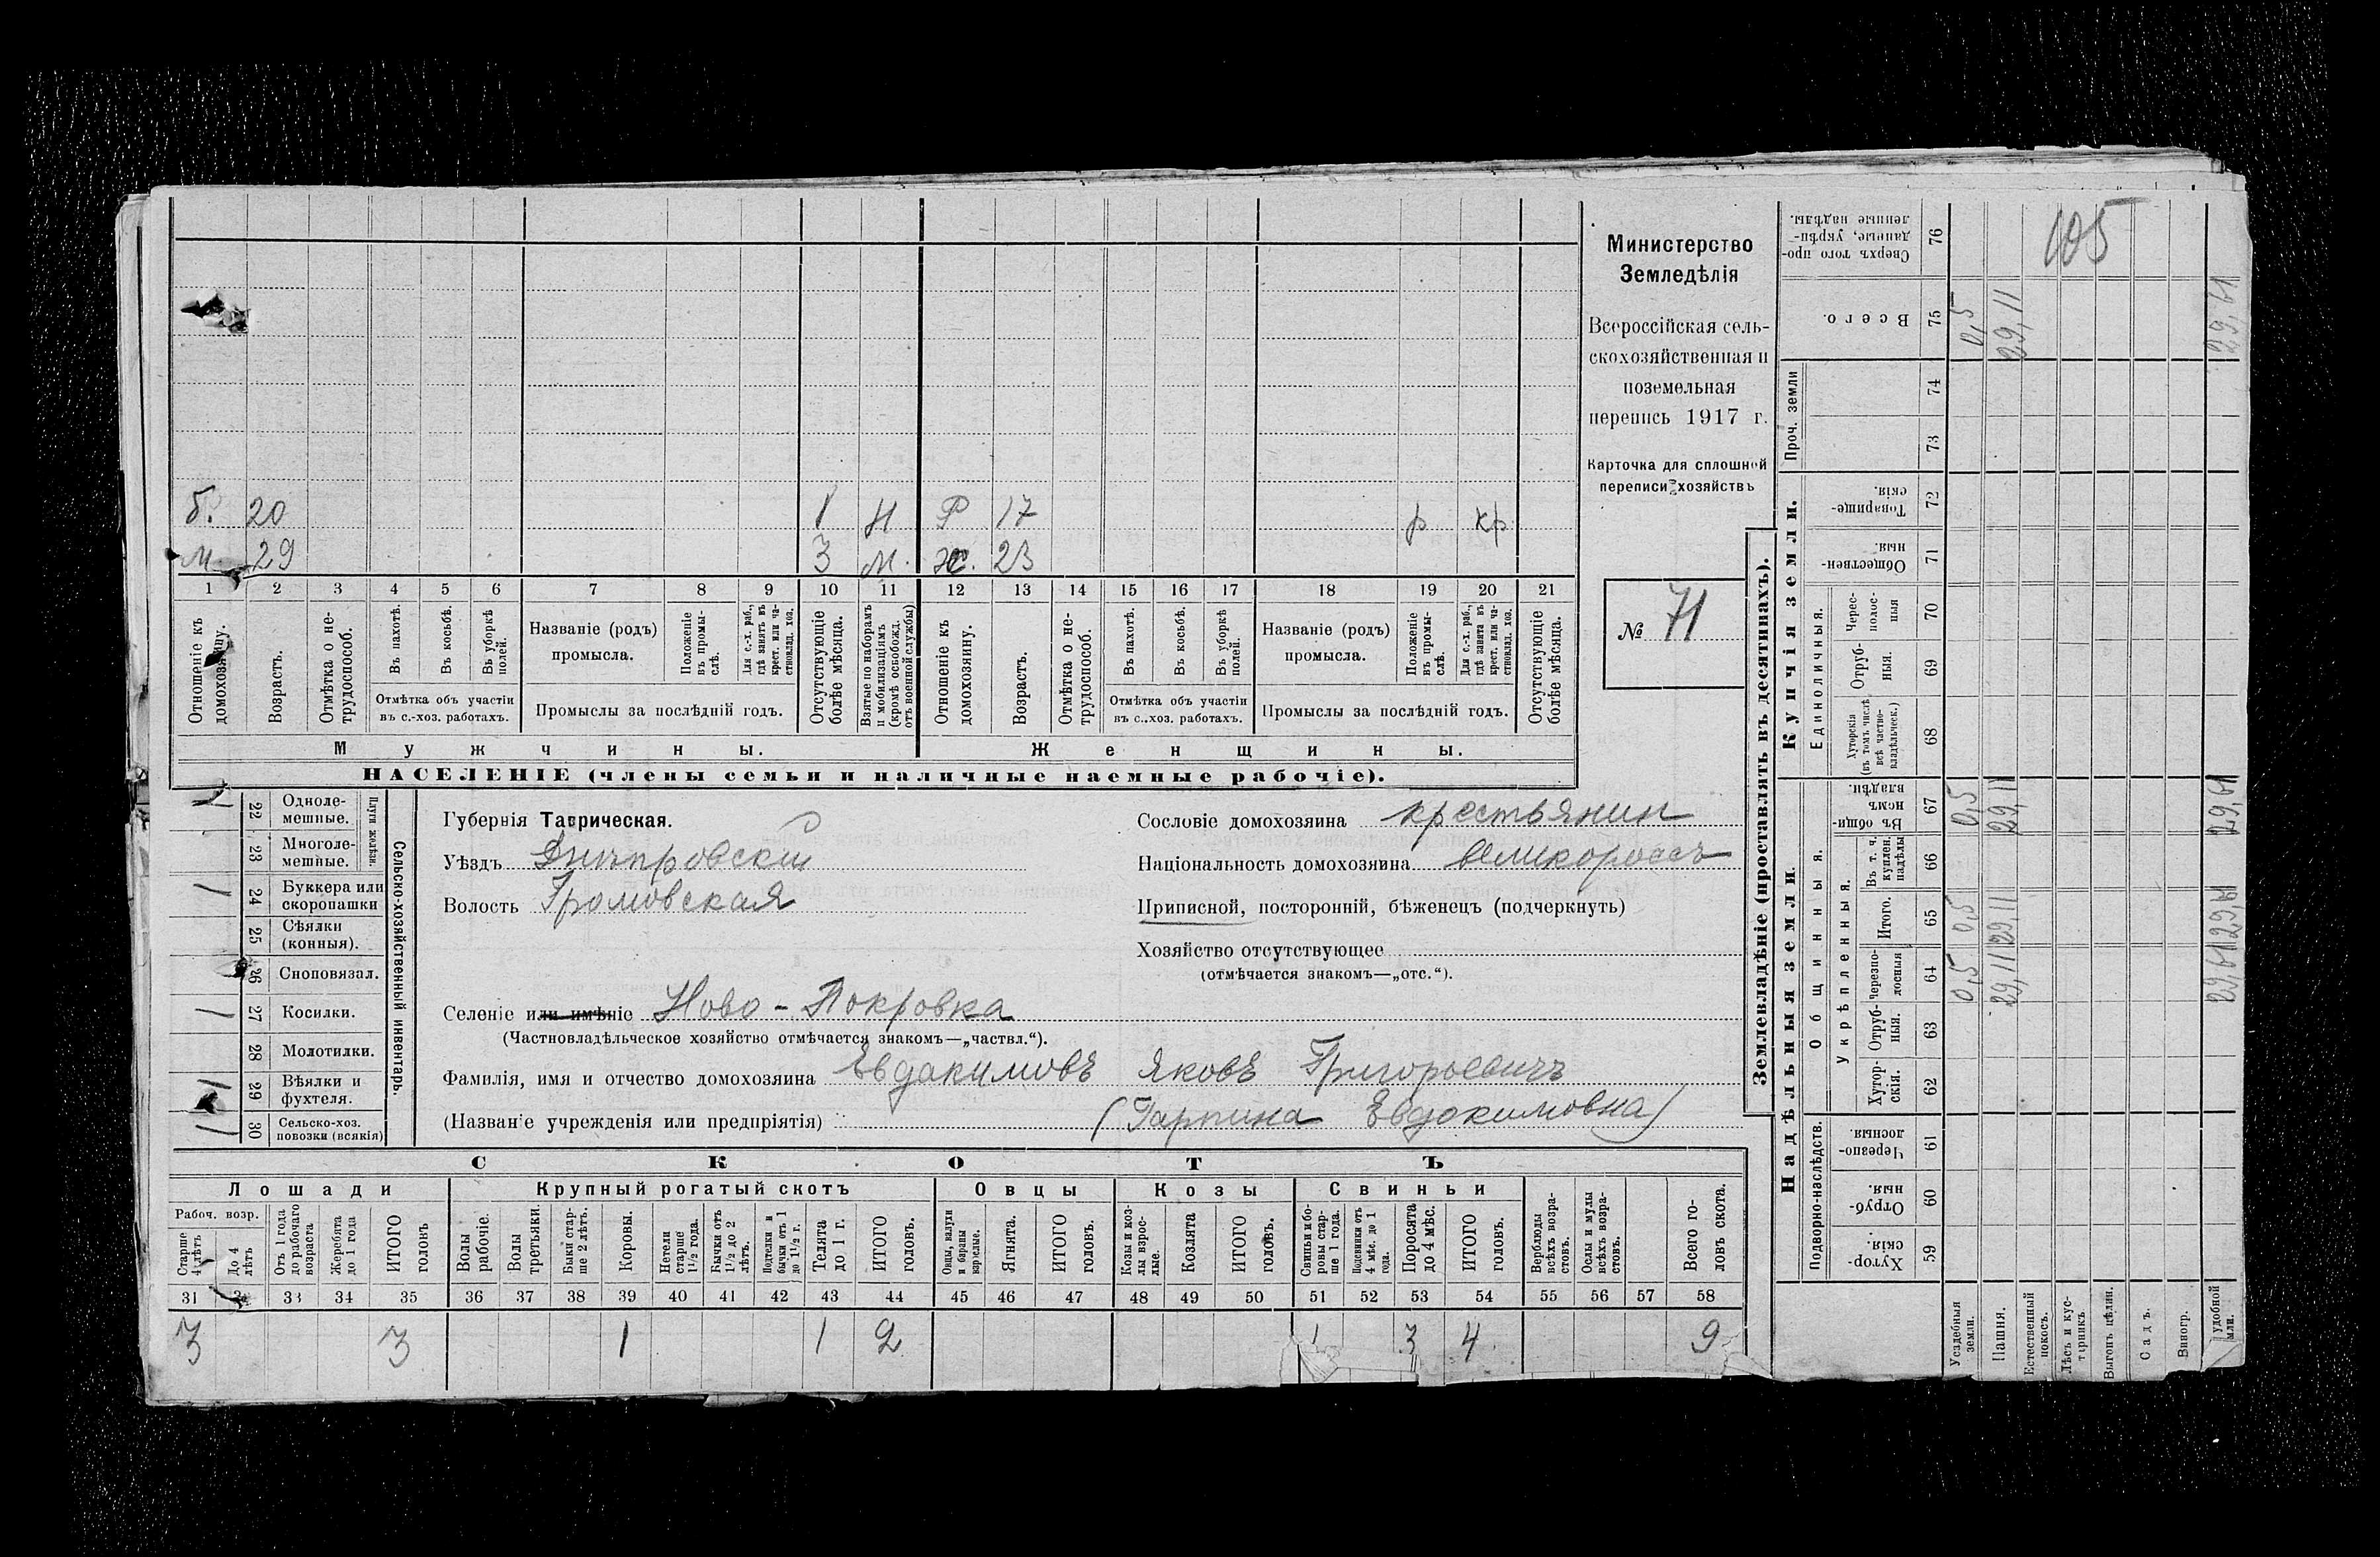 б. 20 1 Н Р 17 р кр
м. 29 3 м. ж. 23
1 2 3 4 5 6 7 8 9 10 11 12 13 14 15 16 17 18 19 20 21
Отношеніе къ домохозяину.
Возрастъ.
Отмѣтка о нетрудоспособ.
Въ пахотѣ.
Въ косьбѣ.
Въ уборкѣ полей.
Отмѣтка объ участіи
въ с.-хоз. работахъ.
Названіе (родъ)
промысла.
Положеніе въ промыслѣ.
Для с.-х. раб., гдѣ занятъ въ крест. или частновлад. хоз.
Промыслы за послѣдній годъ.
Отсутствующіе болѣе мѣсяца.
Взятые по наборамъ и мобилизаціямъ (кромѣ освобожд. отъ военной службы)
Отношеніе къ домохозяину.
Возрастъ.
Отмѣтка о нетрудоспособ.
Въ пахотѣ.
Въ косьбѣ.
Въ уборкѣ полей.
Отмѣтка объ участіи
въ с.-хоз. работахъ.
Названіе (родъ)
промысла.
Положеніе въ промыслѣ.
Для с.-х. раб., гдѣ занята въ крест. или частновлад. хоз.
Промыслы за послѣдній годъ.
Отсутствующіе болѣе мѣсяца.
Мужчины. Женщины.
НАСЕЛЕНІЕ (члены семьи и наличные наемные рабочіе).
Министерство
Земледѣлія
Всероссійская сель-
скохозяйственная и
поземельная
перепись 1917 г.
Карточка для сплошной
переписи хозяйствъ
№ 71
Сельско-хозяйственный инвентарь.
Плуги желѣзн.
22 Одноле-
мешные.
23 Многоле-
мешные.
1 24 Буккера или
скоропашки
25 Сѣялки
(конныя).
26 Сноповязал.
1 27 Косилки.
28 Молотилки.
29 Вѣялки и
фухтеля.
1 30 Сельско-хоз.
повозки (всякія)
Губернія Таврическая.
Уѣздъ Днѣпровскій
Волость Громовская
Селеніе или имѣніе Ново-Покровка
(Частновладѣльческое хозяйство отмѣчается знакомъ—„частвл.“).
Фамилія, имя и отчество домохозяина Евдакимовъ Яковъ Григорьевичъ
(Названіе учрежденія или предпріятія) (Гарпина Евдокимовна)
Сословіе домохозяина крестьянин
Національность домохозяина великороссъ
Приписной, посторонній, бѣженецъ (подчеркнуть)
Хозяйство отсутствующее
(отмѣчается знакомъ—„отс.“).
СКОТЪ
Лошади Крупный рогатый скотъ Овцы Козы Свиньи
Рабоч. возр.
Старше 4 лѣтъ
До 4 лѣтъ
Отъ 1 года до рабочаго возраста
Жеребята до 1 года
ИТОГО головъ
Волы рабочіе.
Волы третьяки.
Быки старше 2 лѣтъ.
Коровы.
Нетели старше 1½ года.
Бычки отъ 1½ до 2 лѣтъ.
Подтелки и бычки отъ 1 до 1½ г.
Телята до 1 г.
ИТОГО головъ.
Овцы, валухи и бараны взрослые.
Ягнята.
ИТОГО головъ.
Козы и козлы взрослые.
Козлята
ИТОГО головъ.
Свиньи и боровы старше 1 года.
Подсвинки отъ 4 мѣс. до 1 года.
Поросята до 4 мѣс.
ИТОГО головъ.
Верблюды всѣхъ возрастовъ.
Ослы и мулы всѣхъ возрастовъ.
Всего головъ скота.
31 32 33 34 35 36 37 38 39 40 41 42 43 44 45 46 47 48 49 50 51 52 53 54 55 56 57 58
3 3 1 1 2 1 3 4 9
Землевладѣніе (проставлять въ десятинахъ).
Надѣльныя земли. Купчія земли. Проч. земли
Подворно-наслѣдств. Общинныя. Единоличныя.
Укрѣпленныя.
Хуторскія. 59
Отрубныя. 60
Черезполосныя. 61
Хуторскія. 62
Отрубныя. 63
Черезполосныя 64 0,5 29,11 29,61
Итого. 65 0,5 29,11 29,61
Въ т. ч. куплен. надѣлы 66
Въ общинномъ владѣн. 67 0,5 29,11 29,61
Хуторскія (въ томъ числѣ всѣ частновладѣльческ.) 68
Отрубныя. 69
Чересполосныя 70
Общественныя. 71
Товарищескія. 72
73
74
Всего. 75 0,5 29,11 29,61
Сверхъ того проданные, укрѣпленные надѣлы. 76
105
Усадебныя земли.
Пашня.
Естественный покосъ.
Лѣсъ и кустарникъ
Выгонъ цѣлин.
Садъ.
Виногр.
удобной